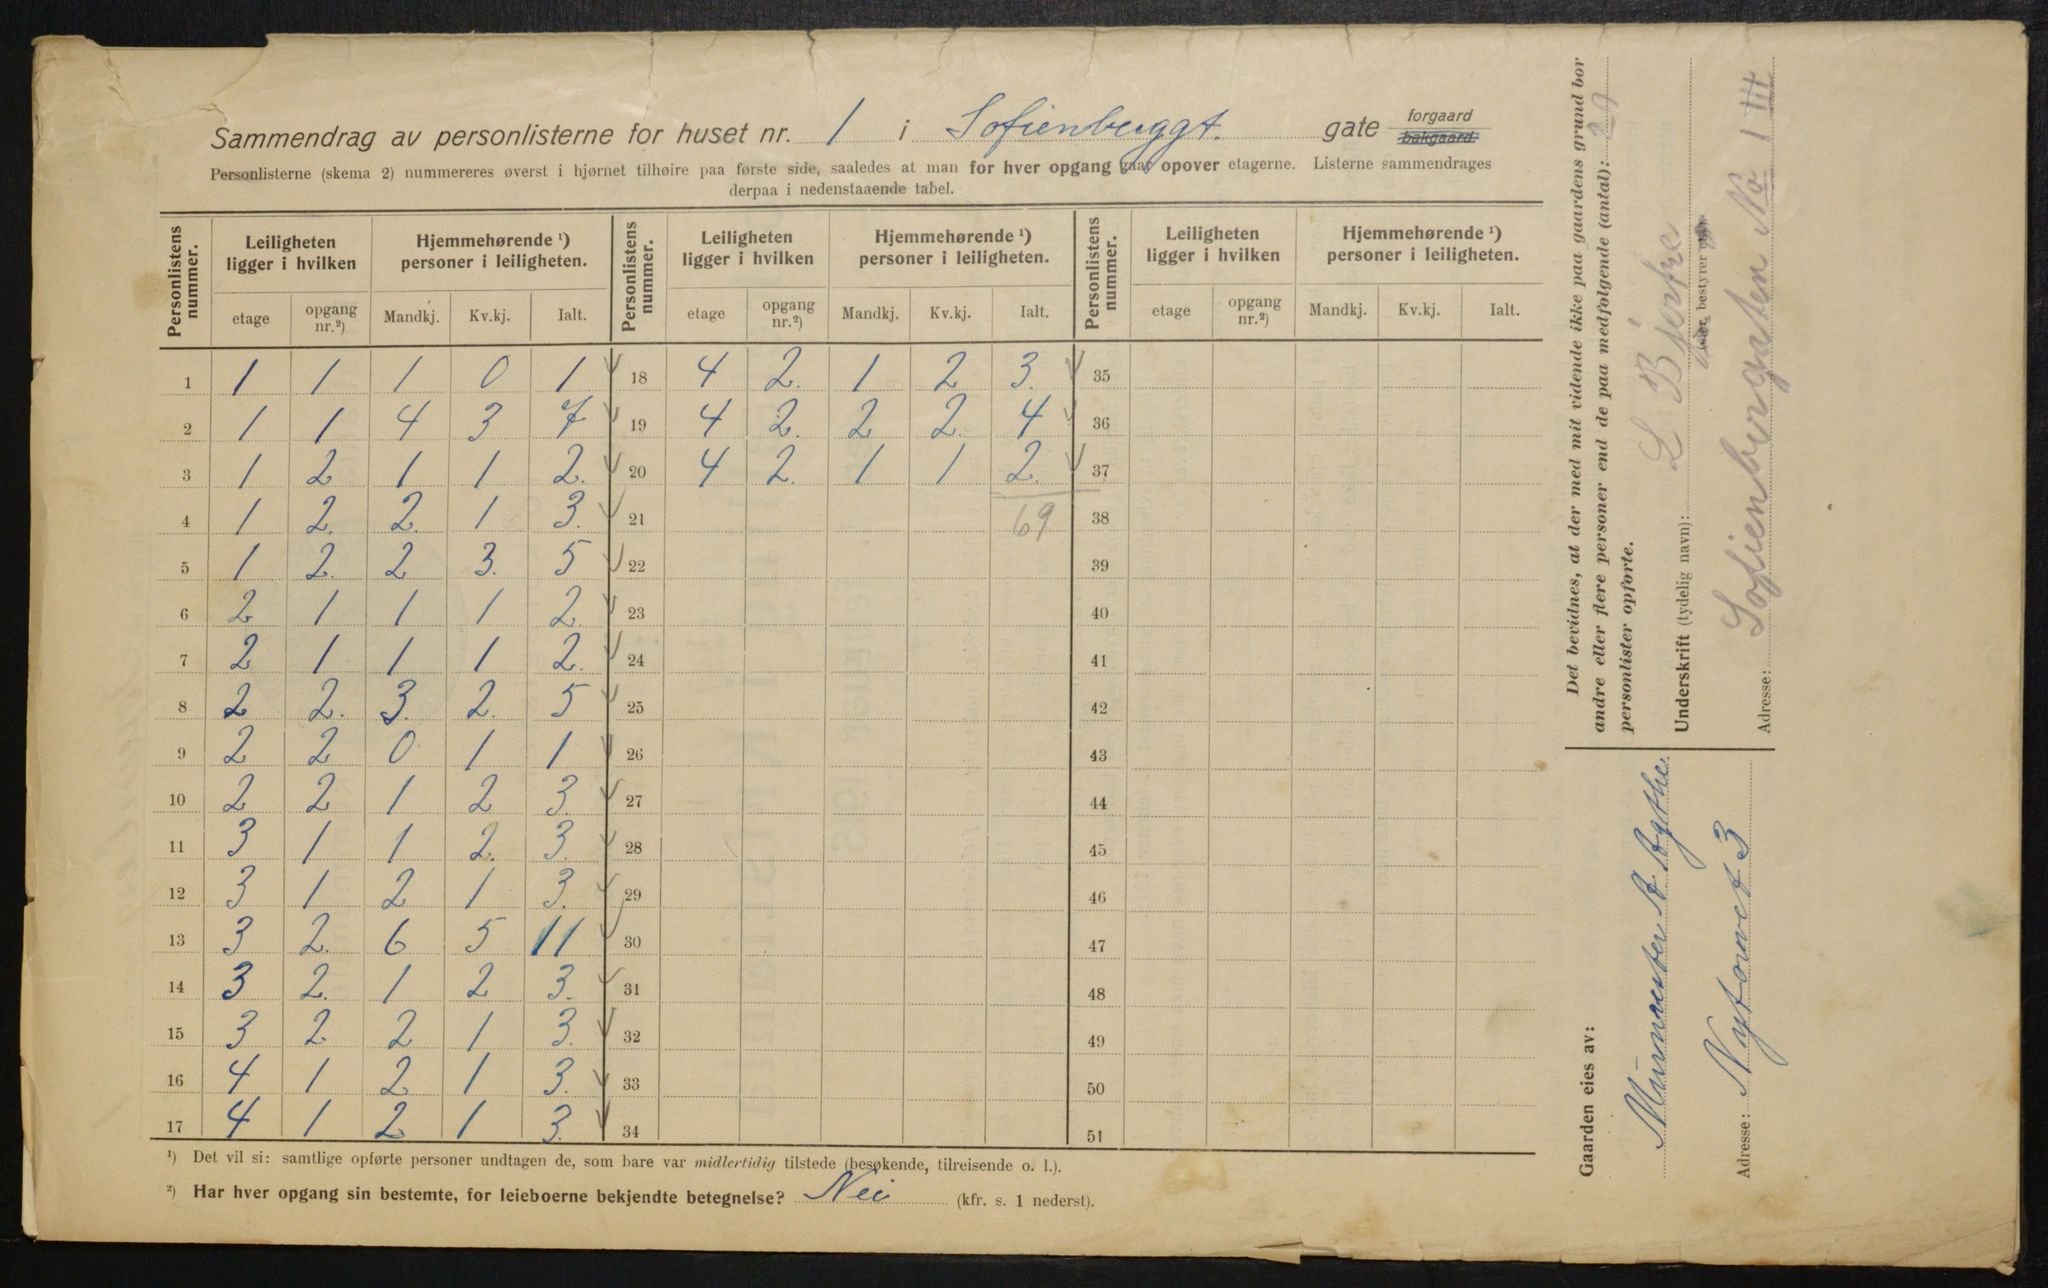 Sammendrag av personlisterne for huset nr. 1 i Sofienberggt. gate forgaard bakgaard.
Personlisterne (skema 2) nummereres øverst i hjørnet tilhøire paa første side, saaledes at man for hver opgang gaar opover etagerne. Listerne sammendrages
derpaa i nedenstaaende tabel.
Personlistens nummer. Leiligheten ligger i hvilken Hjemmehørende ¹) personer i leiligheten. Personlistens nummer. Leiligheten ligger i hvilken Hjemmehørende ¹) personer i leiligheten. Personlistens nummer. Leiligheten ligger i hvilken Hjemmehørende ¹) personer i leiligheten.
etage opgang nr.²) Mandkj. Kv.kj. Ialt. etage opgang nr.²) Mandkj. Kv.kj. Ialt. etage opgang nr.²) Mandkj. Kv.kj. Ialt.
1 1 1 1 0 1 18 4 2. 1 2 3. 35
2 1 1 4 3 7 19 4 2. 2 2. 4 36
3 1 2 1 1 2. 20 4 2. 1 1 2. 37
4 1 2. 2. 1 3. 21 69 38
5 1 2. 2 3. 5 22 39
6 2 1 1 1 2. 23 40
7 2 1 1 1 2. 24 41
8 2 2. 3. 2. 5 25 42
9 2 2 0 1 1 26 43
10 2 2 1 2 3. 27 44
11 3 1 1 2. 3. 28 45
12 3 1 2 1 3. 29 46
13 3 2. 6 5 11 30 47
14 3 2. 1 2 3. 31 48
15 3 2 2 1 3. 32 49
16 4 1 2 1 3. 33 50
17 4 1 2 1 3. 34 51
¹) Det vil si: samtlige opførte personer undtagen de, som bare var midlertidig tilstede (besøkende, tilreisende o. l.).
²) Har hver opgang sin bestemte, for leieboerne bekjendte betegnelse? Nei (kfr. s. 1 nederst).
Det bevidnes, at der med mit vidende ikke paa gaardens grund bor
andre eller flere personer end de paa medfølgende (antal): 20
personlister opførte.
Underskrift (tydelig navn): L Bjerke
(eier, bestyrer
Adresse: Sofienberggaten No 1 III
Gaarden eies av: Murmester A. Agthe
Adresse: Nytorvet 3